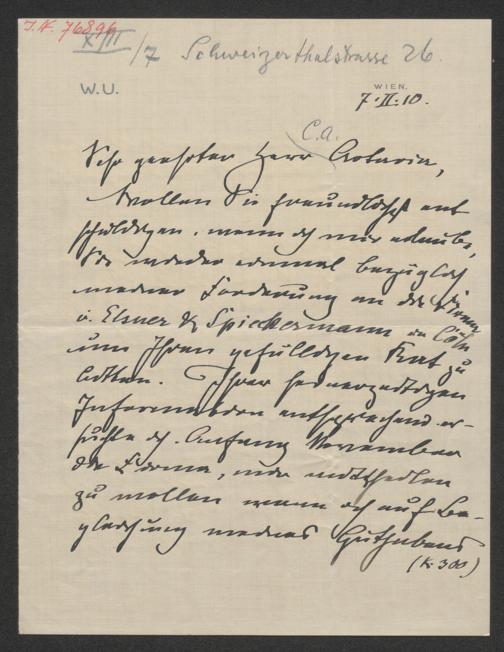 I.N. 76896
XIII/7 Schweizerthalstrasse 26.
W.U.
WIEN,
7.II.10.
C.a.
Sehr geehrter Herr Artaria,
Wollen Sie freundlichst ent-
schuldigen, wenn ich mir erlaube,
Sie wieder einmal bezüglich
meiner Forderung an die Firma
v. Elsner & Spiekermann in Cöln
um Ihren gefälligen Rat zu
bitten. Ihren seinerzeitigen
Informationen entsprechend er-
suchte ich Anfang November
die Firma, mir mittheilen
zu wollen wann ich auf Be-
gleichung meines Guthabens
(K. 300)